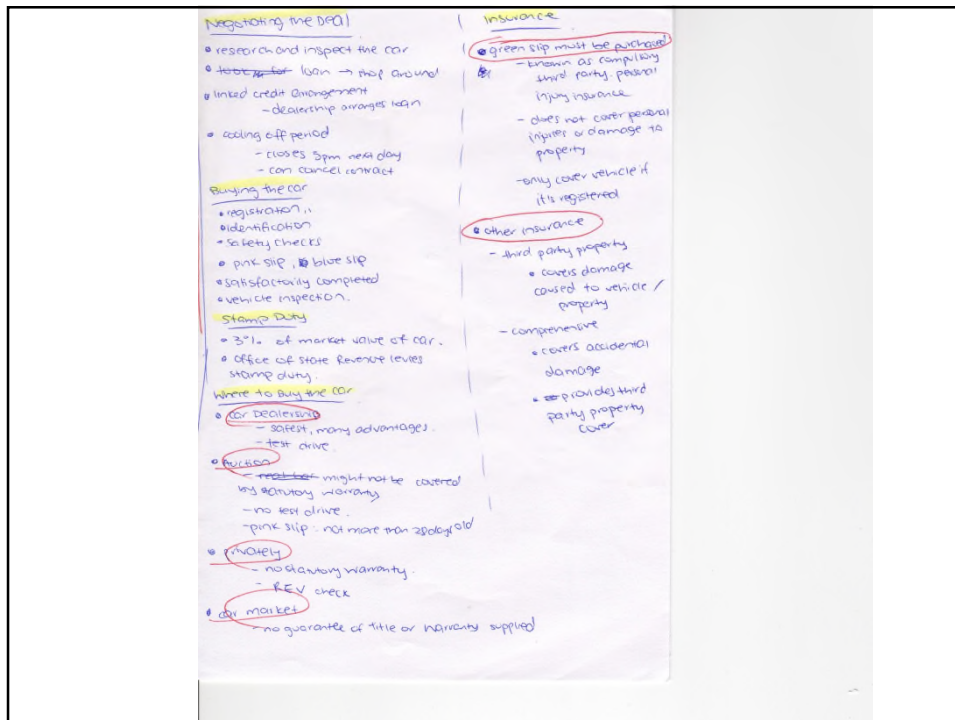 Negotiating the Deal
• research and inspect the car
• loan → shop around
• linked credit arrangement
- dealership arranges loan
• cooling off period
- closes 5pm next day
- can cancel contract
Buying the car
• registration
• identification
• safety checks
• pink slip, blue slip
• satisfactorily completed
• vehicle inspection.
Stamp Duty
• 3% of market value of car.
• Office of State Revenue levies
stamp duty.
Where to Buy the Car
• Car Dealership
- safest, many advantages.
- test drive.
• Auction
- might not be covered
by statutory warranty
- no test drive.
- pink slip: not more than 28 days old
• Privately
- no statutory warranty.
- REV check
• car market
- no guarantee of title or warranty supplied
Insurance
• green slip must be purchased
- known as compulsory
third party. personal
injury insurance
- does not cover personal
injuries or damage to
property
- only cover vehicle if
it's registered
• other insurance
- third party property
• covers damage
caused to vehicle /
property
- comprehensive
• covers accidental
damage
• provides third
party property
cover